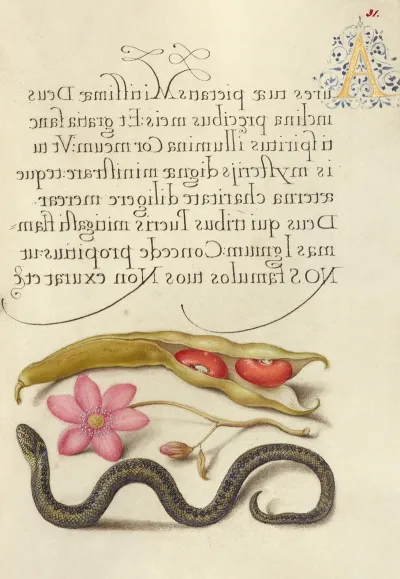 31.
Aures tuæ pietatis Mitissimæ Deus
inclina pręcibus meis: Et gratia sanc
ti spiritus illumina Cor meum: Vt tu
is mysterijs dignæ ministrare: teque
æterna charitate diligere merear.
Deus qui tribus Pueris mitigasti flam
mas Ignium: Concede propitius: ut
NOS famulos tuos Non exurat et &